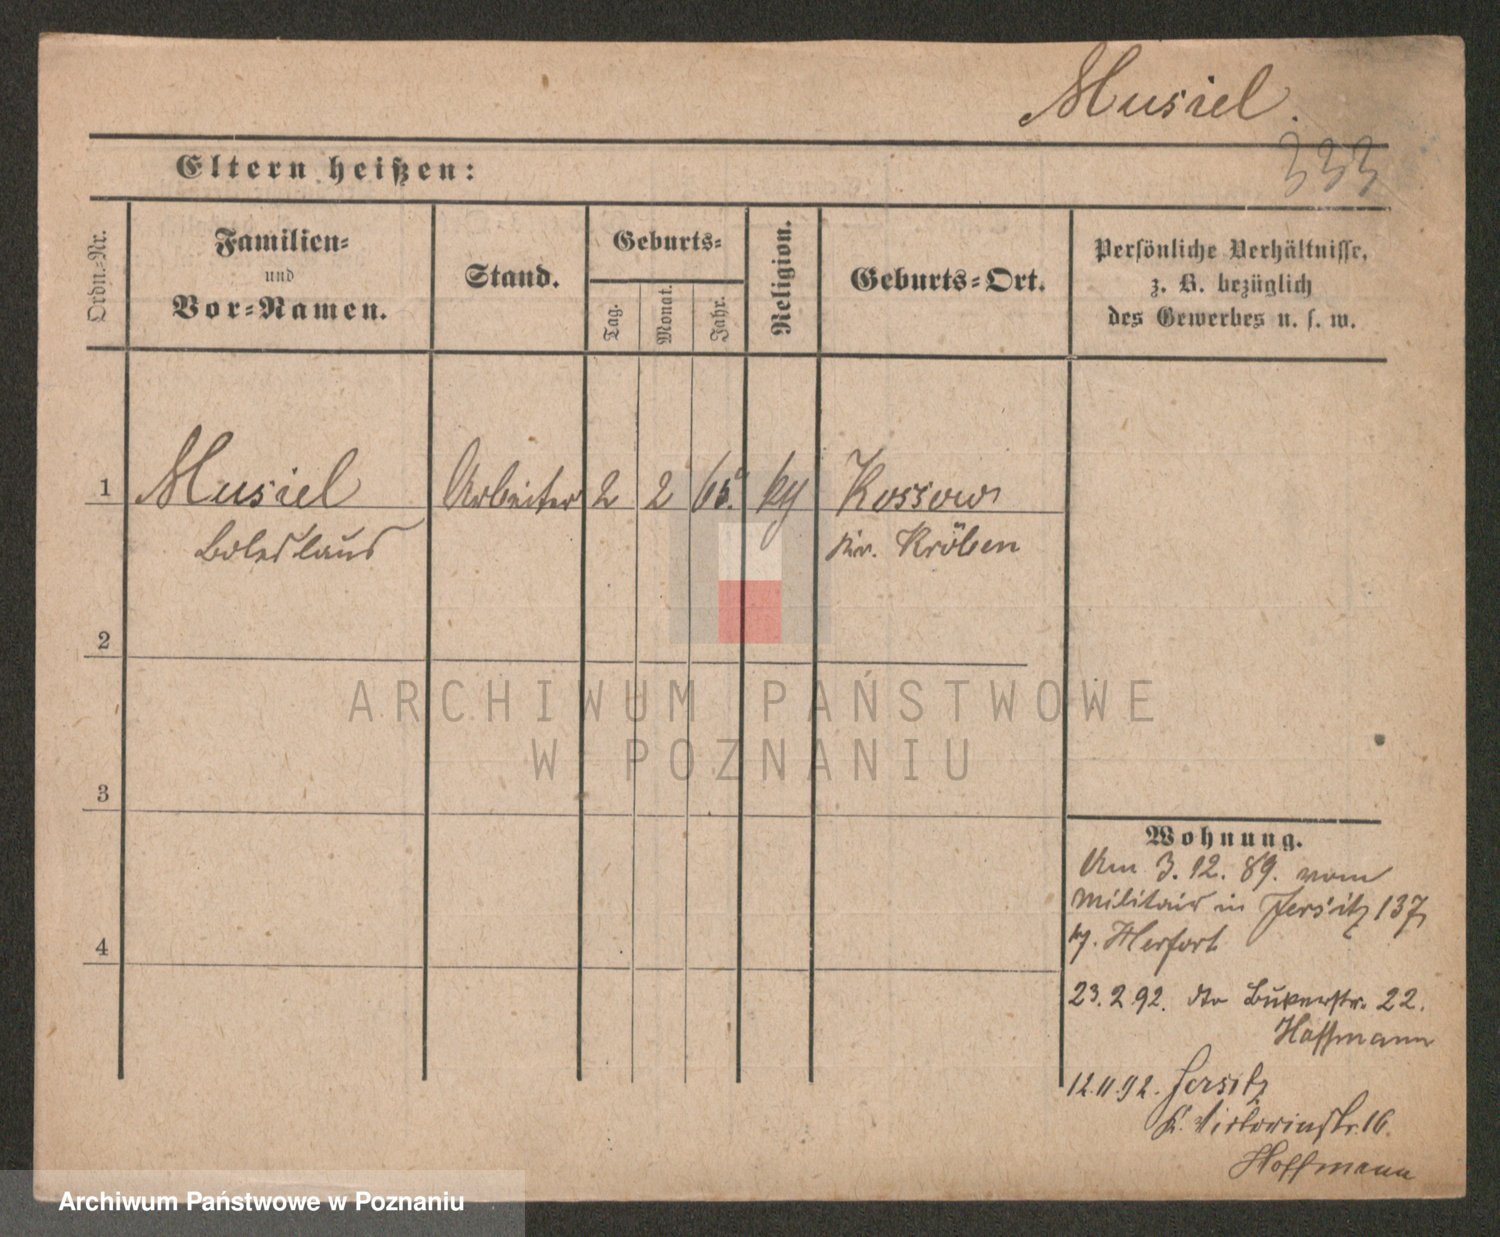 Musiel.
333
Eltern heißen:
Ordn.-Nr.
Familien-
und
Vor-Namen.
Stand.
Geburts-
Tag.
Monat.
Jahr.
Religion.
Geburts-Ort.
Persönliche Verhältnisse,
z. B. bezüglich
des Gewerbes u. s. w.
1 Musiel Arbeiter 2 2 65. Kossow
Boleslaus Kr. Kröben
2
3
4
Wohnung.
Am 3. 12. 89. vom
Militair in Jersitz 137
Herfort
23.2 92. dto Bukerstr. 22.
Hoffmann
12.11.92. Jersitz
Victoriastr. 16.
Hoffmann
ARCHIWUM PAŃSTWOWE
W POZNANIU
Archiwum Państwowe w Poznaniu